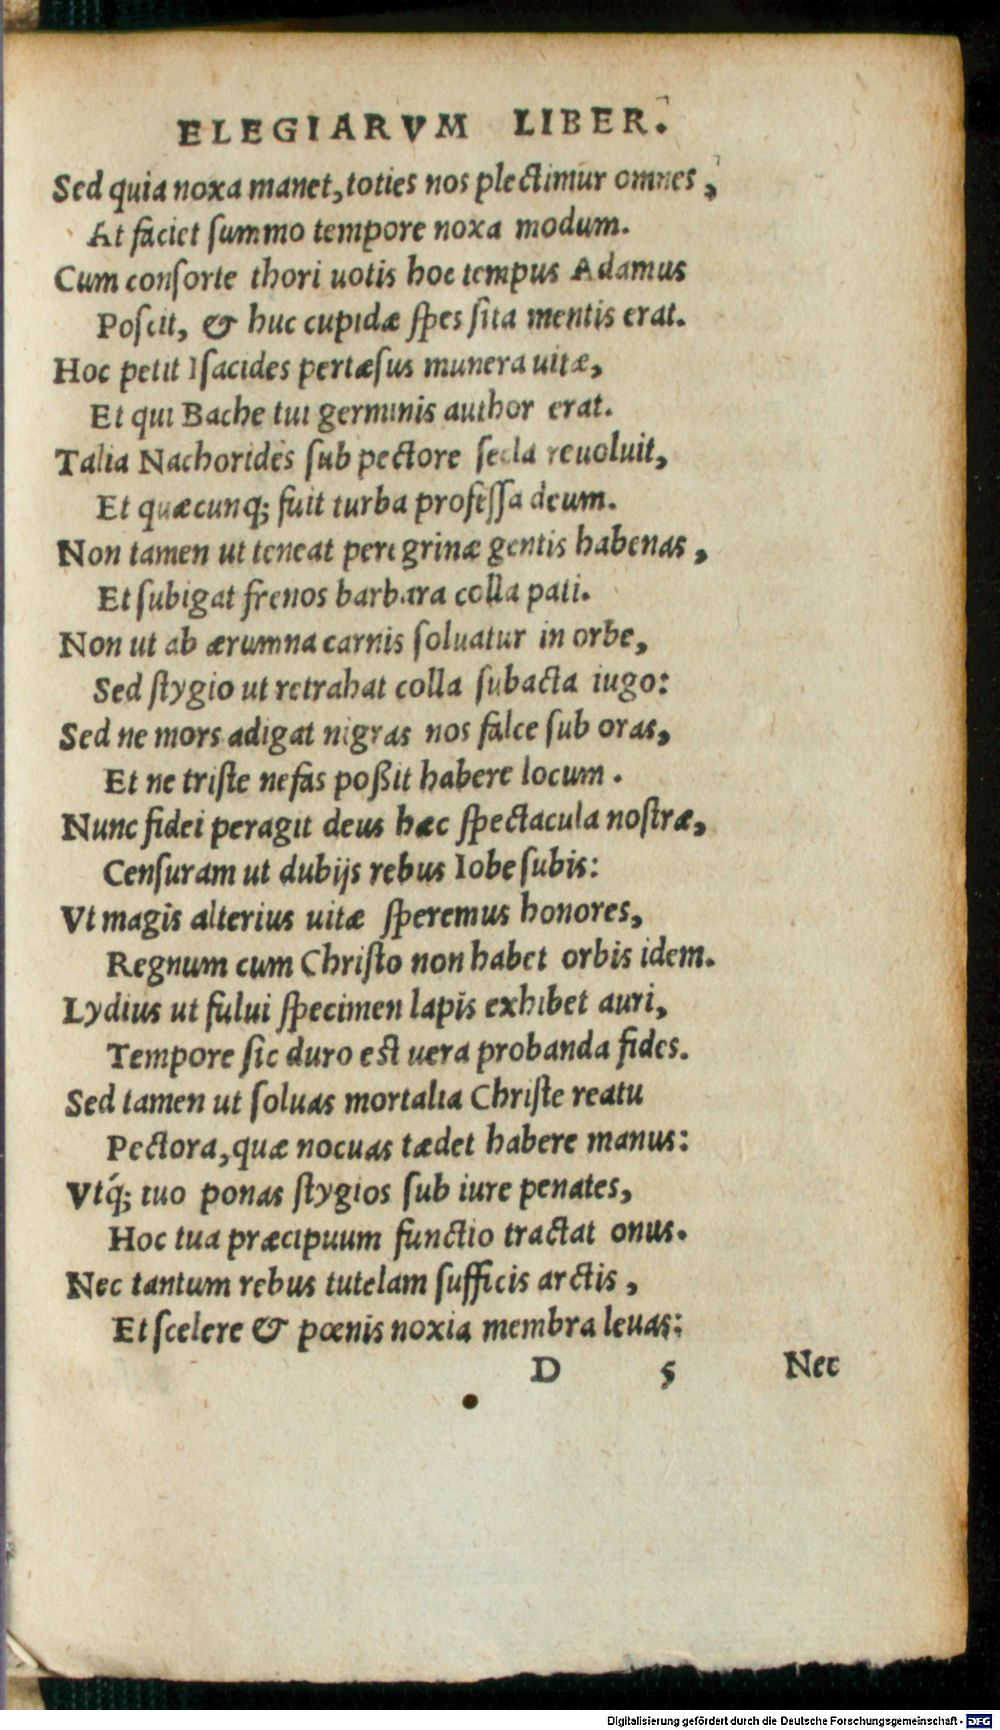 ELEGIARVM LIBER.
Sed quia noxa manet, toties nos plectimur omnes,
At faciet summo tempore noxa modum.
Cum consorte thori uotis hoc tempus Adamus
Poscit, & huc cupidæ spes sita mentis erat.
Hoc petit Isacides pertæsus munera uitæ,
Et qui Bache tui germinis author erat.
Talia Nachorides sub pectore secla reuoluit,
Et quæcunq; fuit turba professa deum.
Non tamen ut teneat peregrinæ gentis habenas,
Et subigat frenos barbara colla pati.
Non ut ab ærumna carnis soluatur in orbe,
Sed stygio ut retrahat colla subacta iugo:
Sed ne mors adigat nigras nos falce sub oras,
Et ne triste nefas poßit habere locum.
Nunc fidei peragit deus hæc spectacula nostræ,
Censuram ut dubijs rebus Iobe subis:
Vt magis alterius uitæ speremus honores,
Regnum cum Christo non habet orbis idem.
Lydius ut fului specimen lapis exhibet auri,
Tempore sic duro est uera probanda fides.
Sed tamen ut soluas mortalia Christe reatu
Pectora, quæ nocuas tædet habere manus:
Vtq́; tuo ponas stygios sub iure penates,
Hoc tua præcipuum functio tractat onus.
Nec tantum rebus tutelam sufficis arctis,
Et scelere & pœnis noxia membra leuas:
D 5 Nec
Digitalisierung gefördert durch die Deutsche Forschungsgemeinschaft - DFG